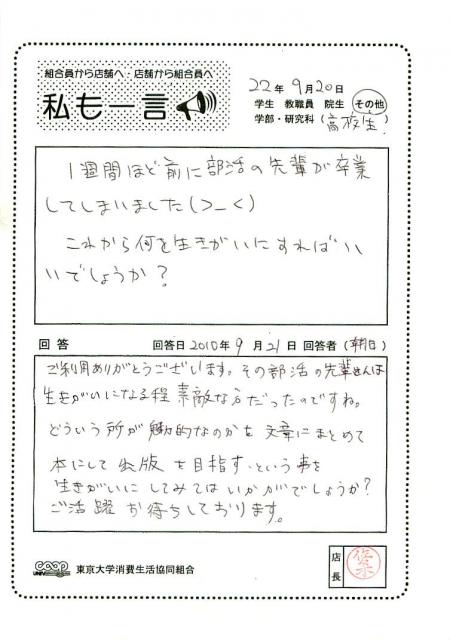 組合員から店舗へ・店舗から組合員へ
私も一言
22年 9月20日
学生 教職員 院生 その他
学部・研究科（高校生!）
1週間ほど前に部活の先輩が卒業
してしまいました(>_<)
これから何を生きがいにすればい
いでしょうか?
回答 回答日2010年9月21日 回答者（朝日）
ご利用ありがとうございます。その部活の先輩さんは
生きがいになる程素敵な方だったのですね。
どういう所が魅力的なのかを文章にまとめて
本にして出版を目指す、という事を
生きがいにしてみてはいかがでしょうか?
ご活躍お待ちしております。
coop
UNIV
東京大学消費生活協同組合
店長